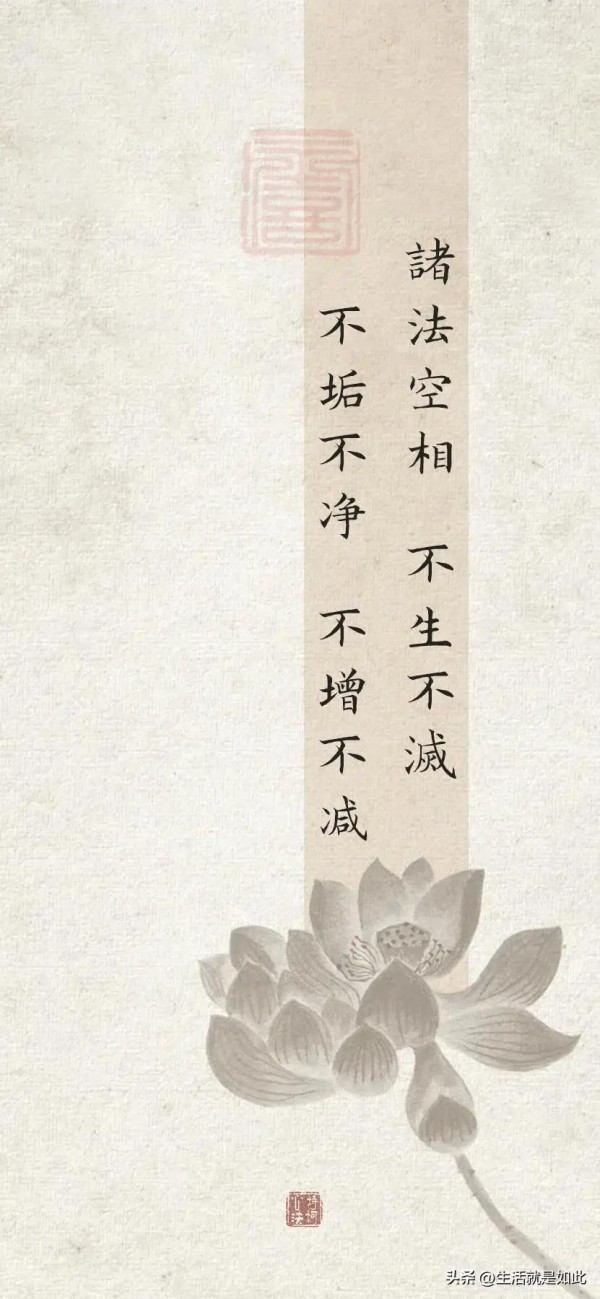 諸法空相 不生不滅
不垢不净 不增不减
头条 @生活就是如此